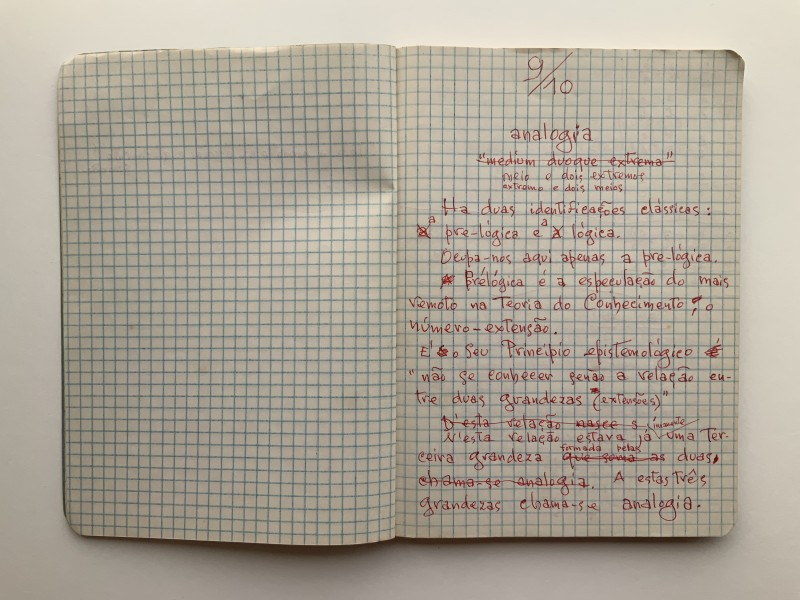 9/10
analogia
"medium duoque extrema"
meio e dois extremos
extremo e dois meios
Ha duas identificações clássicas:
a pre-lógica e a lógica.
Ocupa-nos aqui apenas a pre-lógica.
Prélógica é a especulação do mais
remoto na Teoria do Conhecimento, o
número-extensão.
E' o Seu Princípio epistemológico
"não se conhecer senão a relação en-
tre duas grandezas (extensões)"
D'esta relação nasce
N'esta relação estava já imanente uma Ter-
ceira grandeza formada pelas
que soma as duas,
chama-se analogia. A estas três
grandezas chama-se analogia.